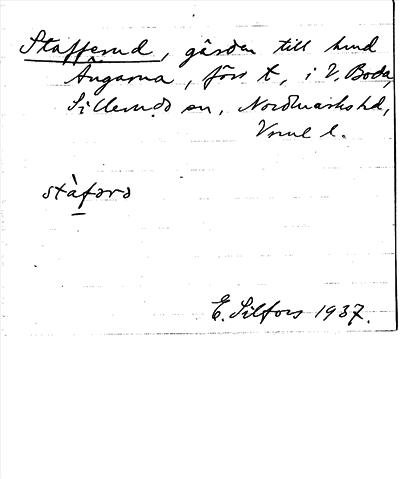 Stafferud, gården till hmd
Ängarna, förr t, i V. Boda,
Sillerud sn, Nordmarks hd,
Vrml l.
stàfərə
E. Silfors 1937.